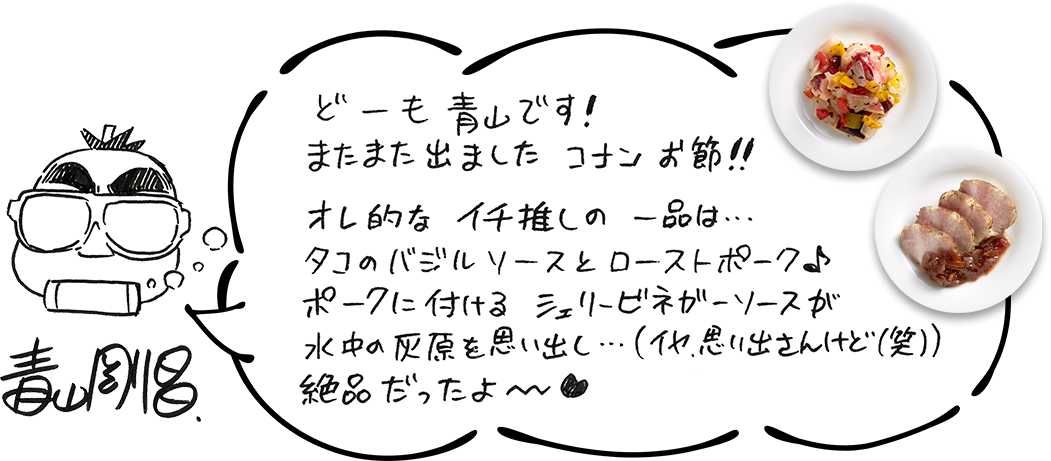 どーも 青山です!
またまた出ました コナンお節!!
オレ的な イチ推しの 一品は…
タコのバジルソースとローストポーク♪
ポークに付ける シェリービネガーソースが
水中の灰原を思い出し…(イヤ、思い出さんけど(笑))
絶品だったよ〜〜♥
青山剛昌.